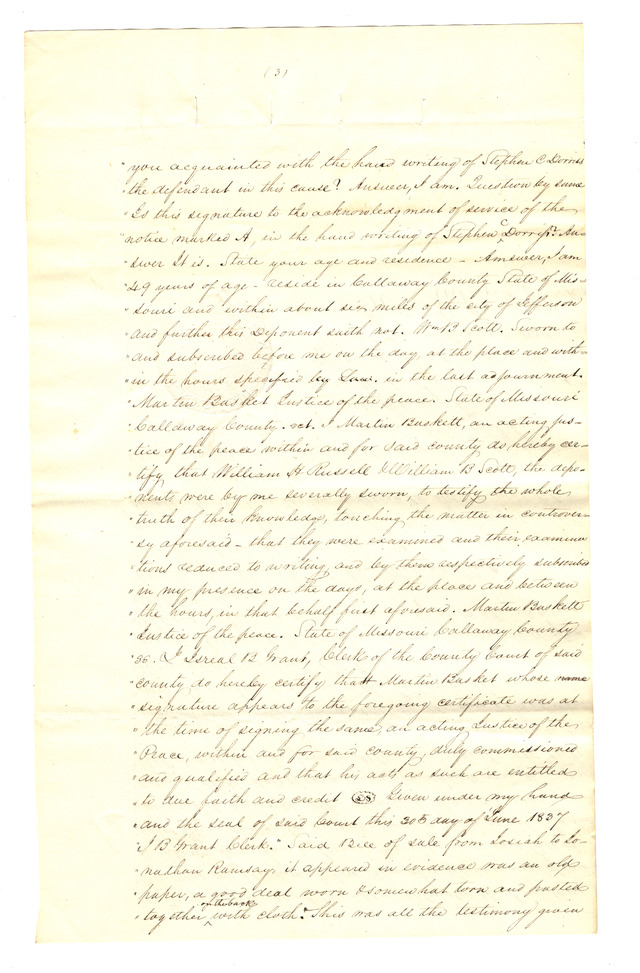 (3)
"you acquainted with the hand writing of Stephen C Dorriss
"the defendant in this cause? Answer, I am. Question by same
"Is this signature to the acknowledgment of service of the
"notice marked A, in the hand writing of Stephen C Dorriss. An-
"swer It is. State your age and residence - Answer, I am
"49 years of age - reside in Callaway County State of Mis-
"souri and within about six miles of the city of Jefferson
"and further this Deponent saith not. Wm B Scott. Sworn to
"and subscribed before me on the day, at the place and with-
"in the hours specified by Law. in the last adjournment.
"Martin Basket Justice of the peace. State of Missouri
"Callaway County. sct. I Martin Baskett, an acting jus-
"tice of the peace within and for said county do, hereby cer-
"tify, that William H Russell & William B Scott, the depo-
"nents were by me severally sworn, to testify the whole
"truth of their knowledge, touching the matter in controver-
"sy aforesaid - that they were examined and their examina
"tions reduced to writing, and by them respectively subscribed
"in my presence on the days, at the place and between
"the hours, in that behalf first aforesaid. Martin Baskett
"Justice of the peace. State of Missouri Callaway County
"ss. I Isreal B Grant, Clerk of the County Court of said
"county do hereby certify that Martin Basket whose name
"signature appears to the foregoing certificate was at
"the time of signing the same, an acting Justice of the
"Peace, within and for said county, duly commissioned
"and qualified and that his acts as such are entitled
"to due faith and credit Given under my hand
"and the seal of said Court this 20th day of June 1837
"I B Grant Clerk." Said Bill of sale from Josiah to Jo-
"nathan Ramsay, it appeared in evidence was an old
"paper, a good deal worn & somewhat torn and pasted
"together on the back with cloth." This was all the testimony given